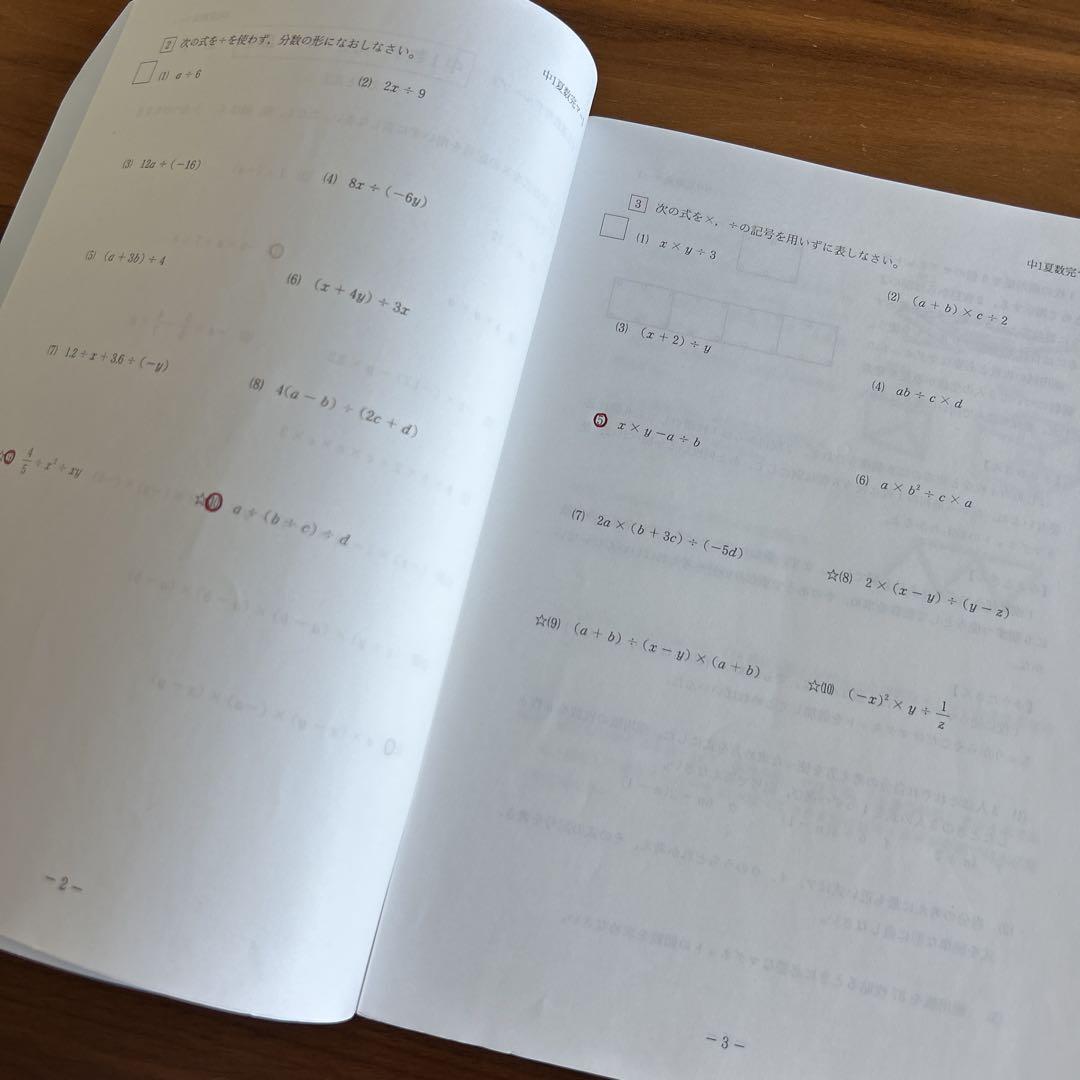 2 次の式を÷を使わず，分数の形になおしなさい。
(1) a÷6
(2) 2x÷9
(3) 12a÷(−16)
(4) 8x÷(−6y)
(5) (a+3b)÷4
(6) (x+4y)÷3x
(7) 1.2÷x+3.6÷(−y)
(8) 4(a−b)÷(2c+d)
4/5÷x²÷xy
☆(10) a÷(b÷c)÷d
−2−
中1夏数完
3 次の式を×，÷の記号を用いずに表しなさい。
中1夏数完
(1) x×y÷3
(2) (a+b)×c÷2
(3) (x+2)÷y
(4) ab÷c×d
(5) x×y−a÷b
(6) a×b²÷c×a
(7) 2a×(b+3c)÷(−5d)
☆(8) 2×(x−y)÷(y−z)
☆(9) (a+b)÷(x−y)×(a+b)
☆(10) (−x)²×y÷1/z
−3−